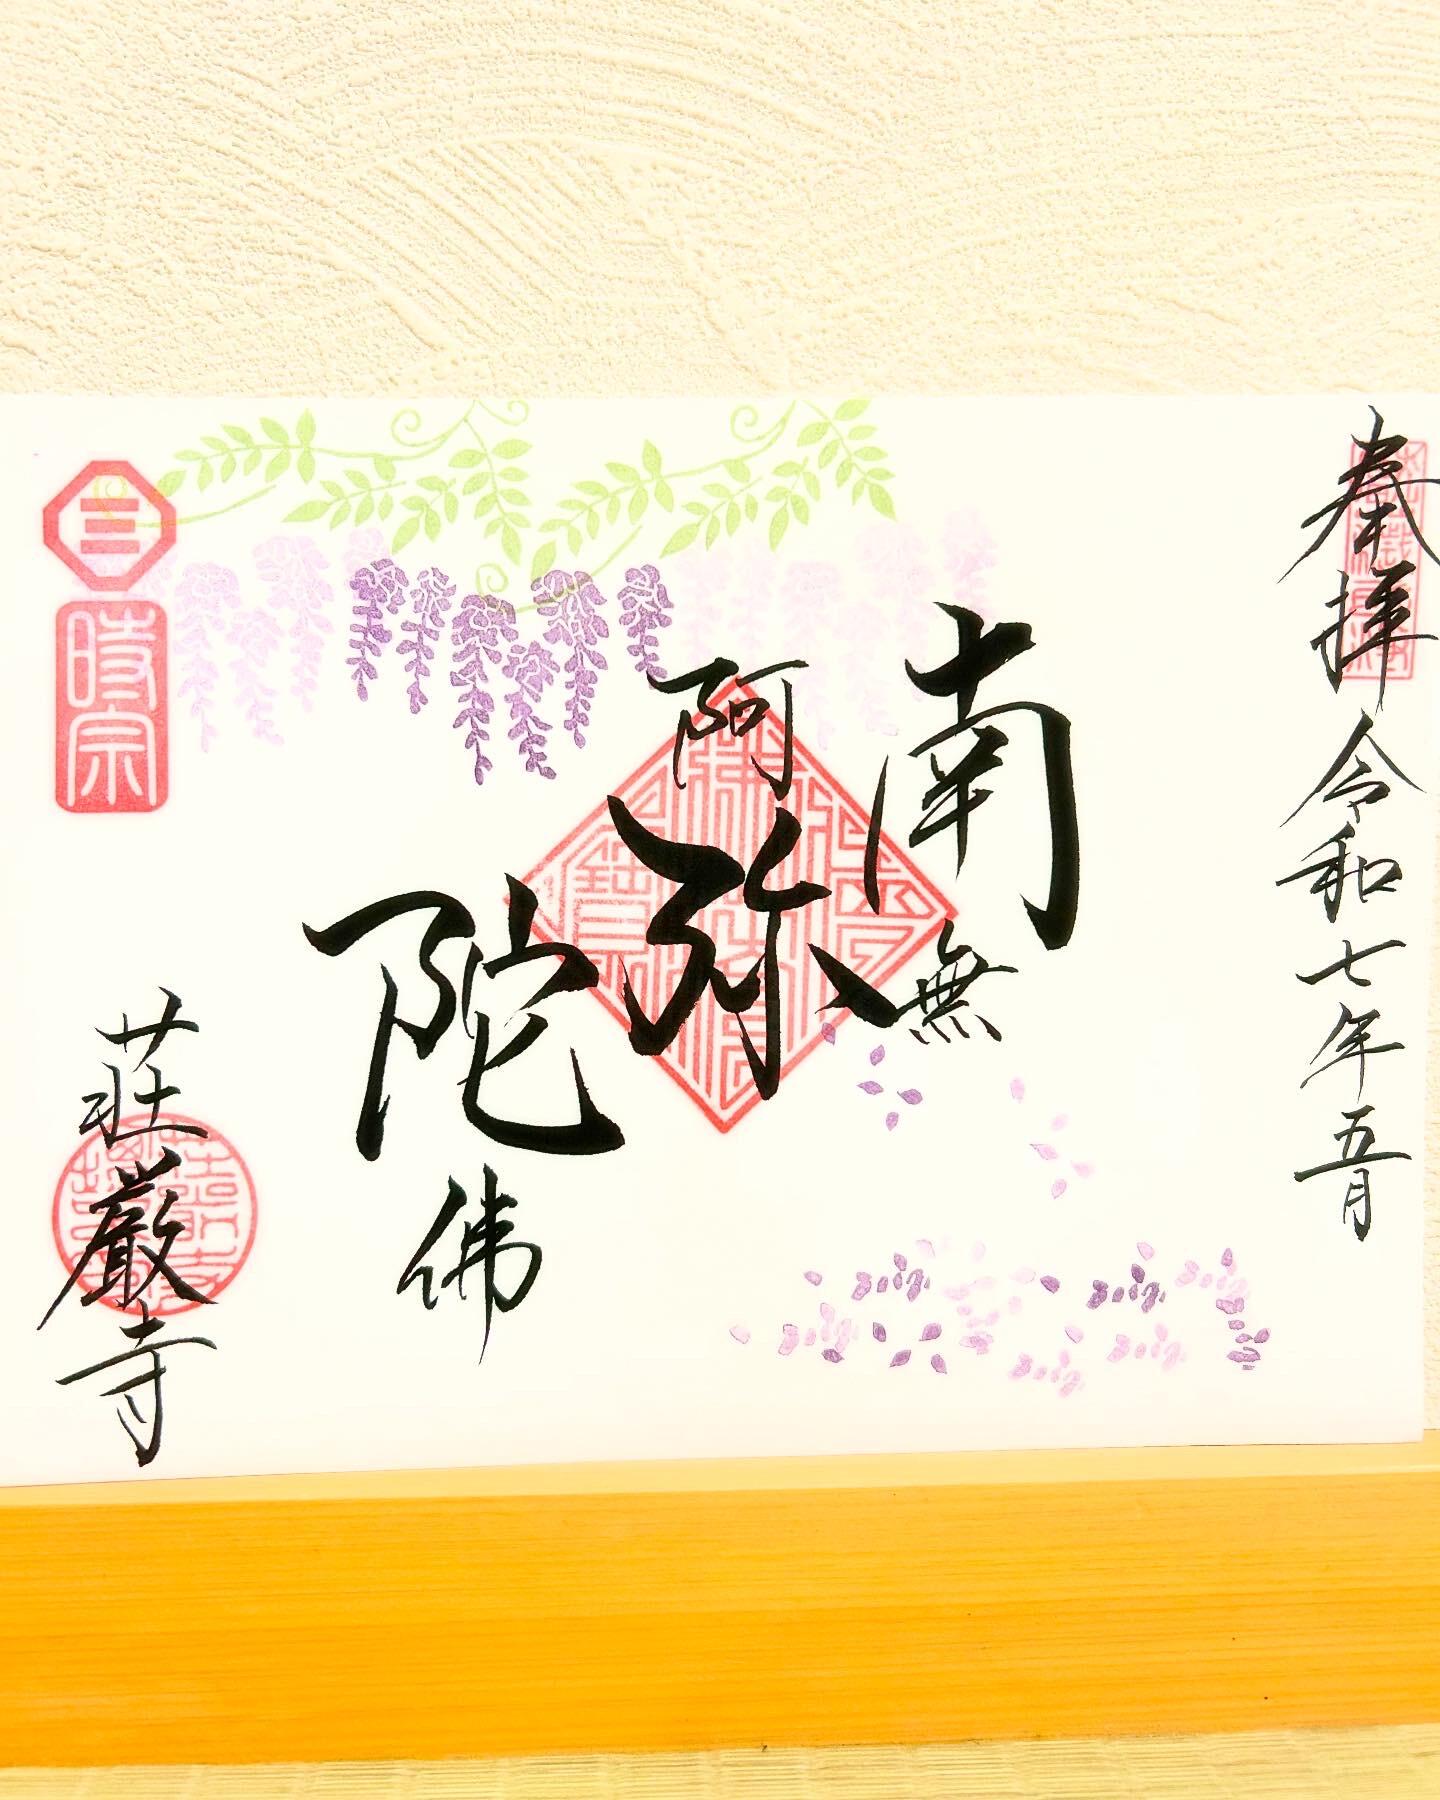 奉拝 令和七年五月
南無
阿弥
陀佛
時宗
荘厳寺